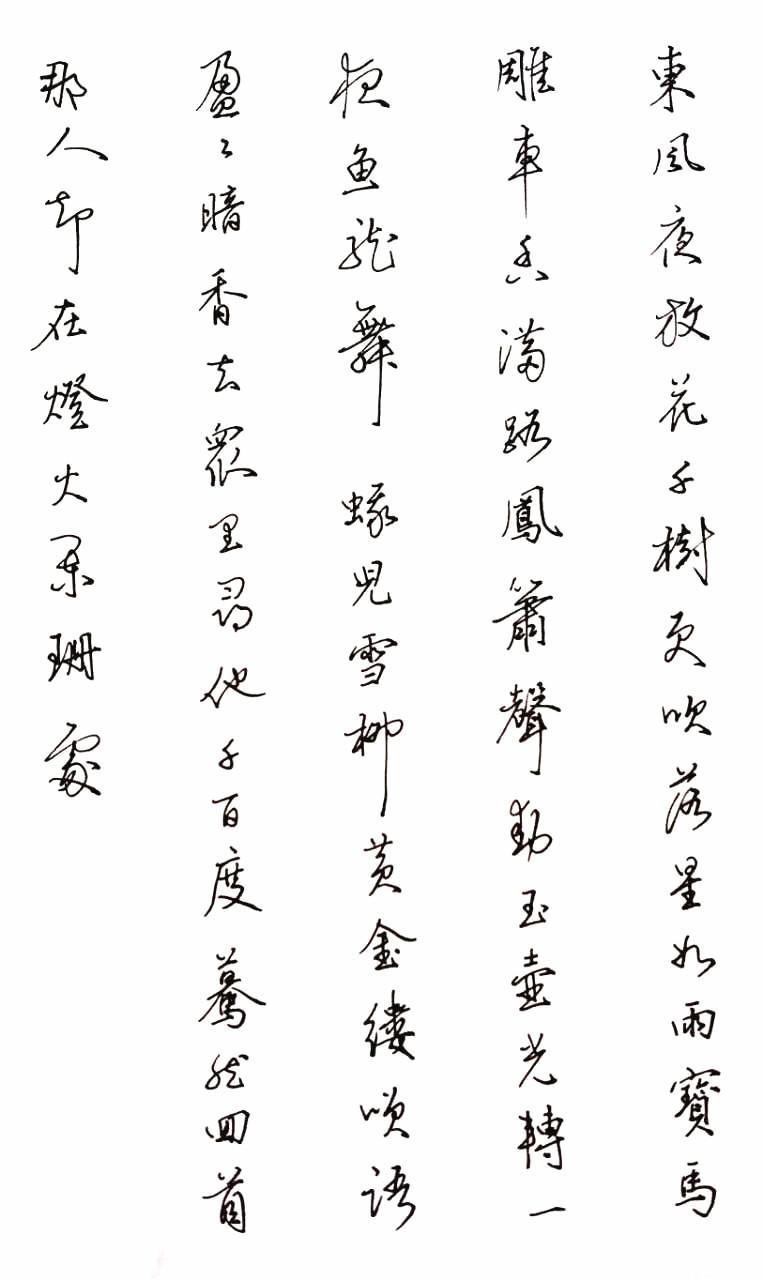 東風夜放花千樹更吹落星如雨寶馬
雕車香滿路鳳簫聲動玉壺光轉一
夜魚龍舞 蛾兒雪柳黃金縷唉語
盈々暗香去衆里尋他千百度驀然回首
那人却在燈火闌珊處